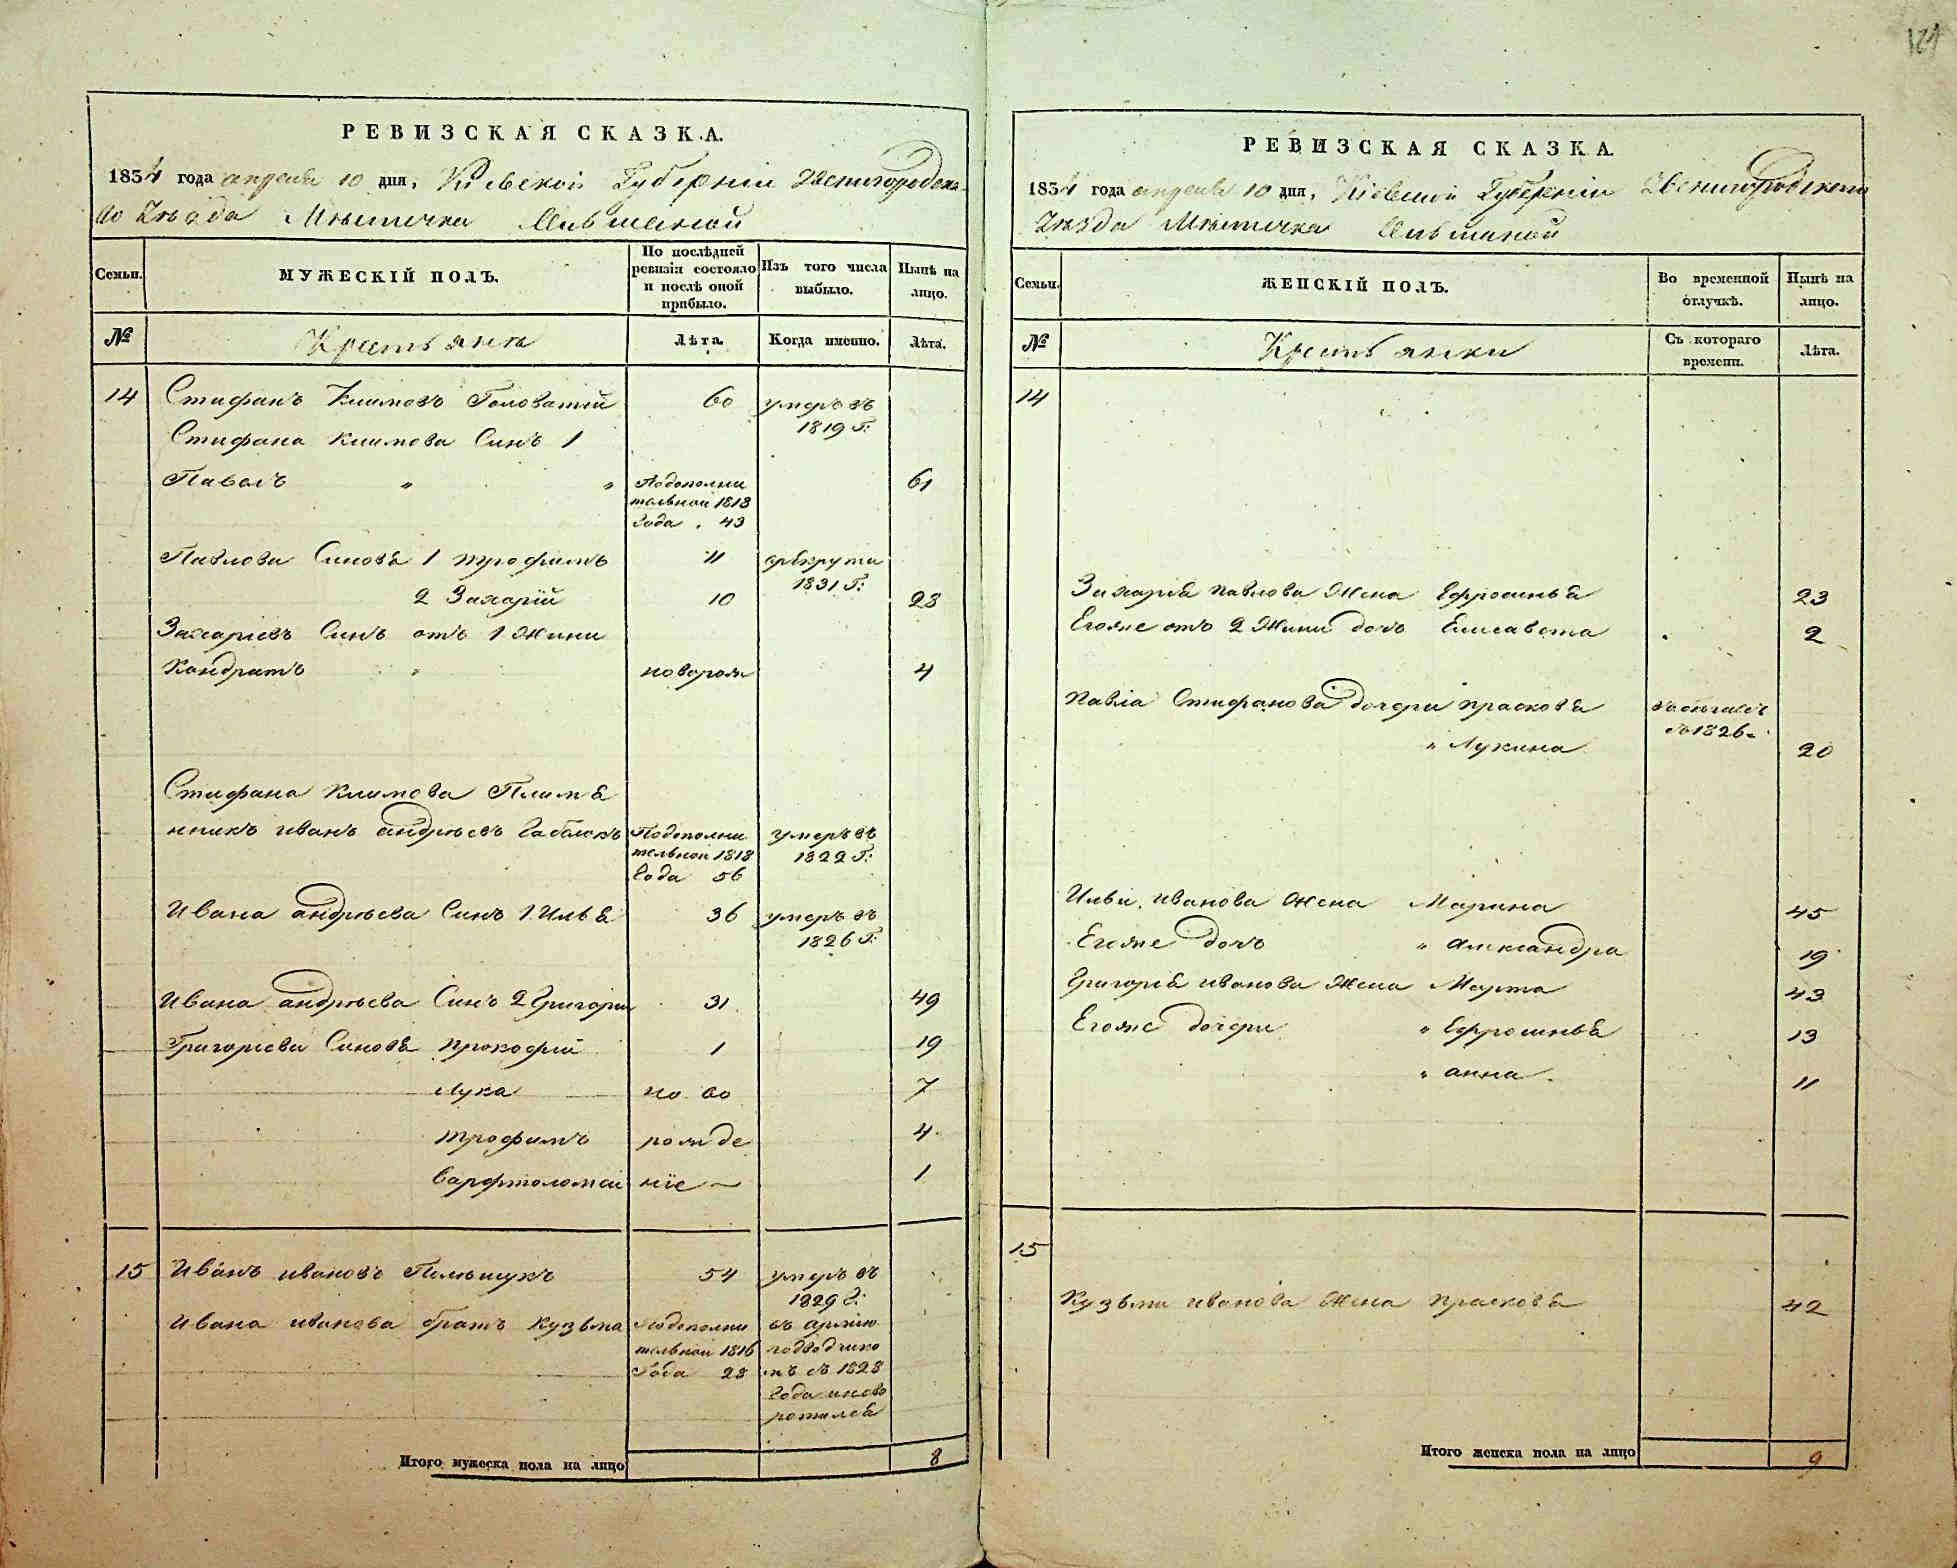 121
РЕВИЗСКАЯ СКАЗКА.
1834 года апреля 10 дня, Кіевской Губерніи Звенигородска-
го Уѣзда Мѣстечка Ольшаной
Семьи.
МУЖЕСКІЙ ПОЛЪ.
По послѣдней ревизіи состояло и послѣ оной прибыло.
Изъ того числа выбыло.
Нынѣ на лицо.
№
Крестьяне
Лѣта.
Когда именно.
Лѣта.
14 Стифанъ Климовъ Головатий 60 умеръ въ
1819 Г:
Стифана Климова Синъ 1
Павелъ " " Подополни 61
тельной 1818
Года . 43
Павлова Синовя 1 Трофимъ 11 орекрути
1831 Г:
2 Захарій 10 28
Захаріевъ Синъ отъ 1 Жини
Кондратъ " новорож 4
Стифана Климова Племя
нникъ иванъ андрѣевъ Подополни умеръ въ
тельной 1818 1822 Г:
Года 56
Ивана андрѣева Синъ 1 Илья 36 умеръ въ
1826 Г:
Ивана андрѣева Синъ 2 Григори 31. 49
Григориева Синовя прокофий 1 19
Лука но во 7
трофимъ рож де 4
Варфтоломеи ніе 1
15 Иванъ ивановъ 54 умеръ въ
1829 г:
Ивана иванова братъ Кузьма Подополни въ армию
тельной 1816 подводчико
Года 28 мъ съ 1828
Года инево
ротился
Итого мужеска пола на лицо 8
РЕВИЗСКАЯ СКАЗКА.
1834 года апреля 10 дня, Кіевской Губерніи Звенигородскаго
Уѣзда Мѣстечка Ольшаной
Семьи.
ЖЕНСКІЙ ПОЛЪ.
Во временной отлучкѣ.
Нынѣ на лицо.
№
Крестьянки
Съ котораго времени.
Лѣта.
14
Захария павлова Жена Ефросинья 23
Егоже отъ 2 Жини дочь Елисавета 2
Павла Стифанова дочери прасковя
1826
" Лукина 20
Ильи иванова Жена Марина 45
Егоже дочь " александра 19
Григория иванова Жена Марта 43
Егоже дочери " Ефросинья 13
" анна 11
15
Кузьми иванова Жена прасковя 42
Итого женска пола на лицо 9